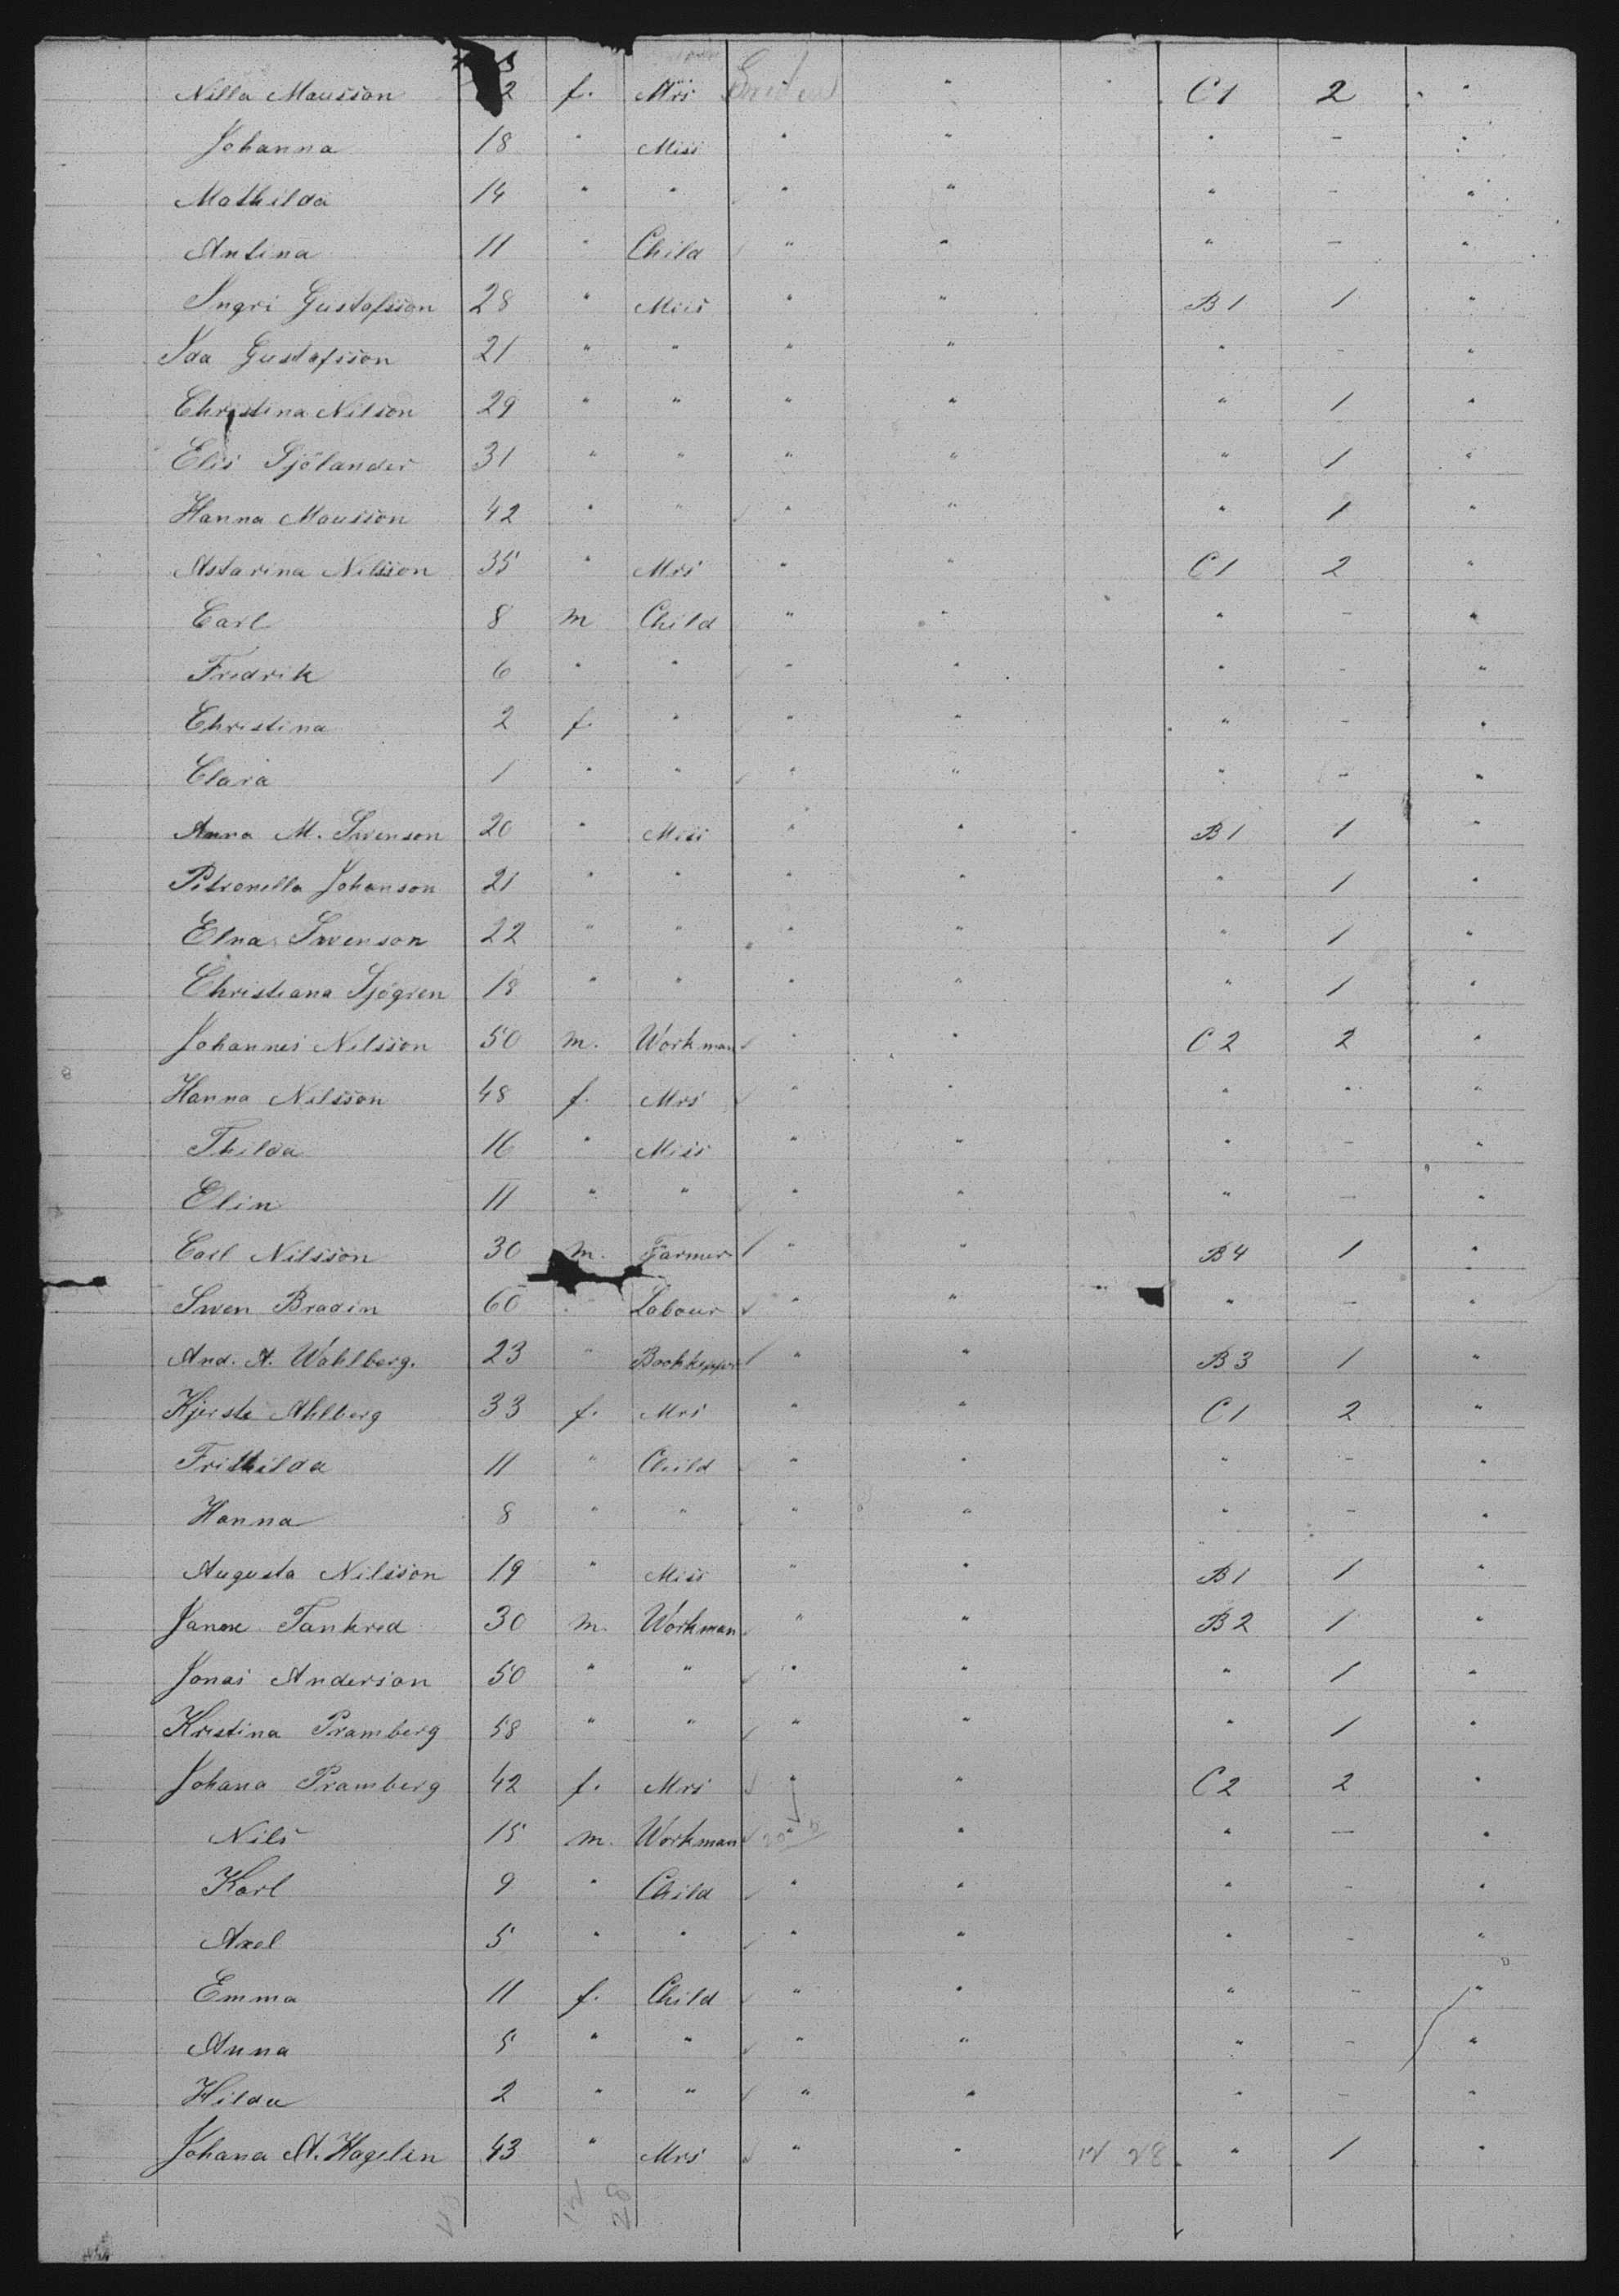 Nilla Mausson 2 f. Mrs Sweden " C1 2 "
Johanna 18 " Miss " " " - "
Mathilda 14 " " " " " - "
Antina 11 " Child " " " - "
Ingri Gustafsson 28 " Miss " " B1 1 "
Ida Gustafsson 21 " " " " " - "
Christina Nilson 29 " " " " " 1 "
Elis Sjölander 31 " " " " " 1 "
Hanna Mausson 42 " " " " " 1 "
Astarina Nilsson 35 " Mrs " " C1 2 "
Carl 8 m Child " " " - "
Fredrik 6 " " " " " - "
Christina 2 f. " " " " - "
Clara 1 " " " " " - "
Anna M. Swenson 20 " Miss " " B1 1 "
Petronella Johanson 21 " " " " " 1 "
Elna Swenson 22 " " " " " 1 "
Christiana Sjögren 18 " " " " " 1 "
Johannes Nilsson 50 m. Workman " " C2 2 "
Hanna Nilsson 48 f. Mrs " " " " "
Thilda 16 " Miss " " " - "
Elin 11 " " " " " - "
Carl Nilsson 30 m. Farmer " " B4 1 "
Swen Bradin 60 " Labour " " " - "
And. A. Wahlberg. 23 " Bookkepper " " B3 1 "
Kjerste Ahlberg 33 f. Mrs " " C1 2 "
Frithilda 11 " Child " " " - "
Hanna 8 " " " " " - "
Augusta Nilsson 19 " Miss " " B1 1 "
Janne Tankred 30 m. Workman " " B2 1 "
Jonas Anderson 50 " " " " " 1 "
Kristina Pramberg 58 " " " " " 1 "
Johana Pramberg 42 f. Mrs " " C2 2 "
Nils 15 m. Workman " " " - "
Karl 9 " Child " " " - "
Axel 5 " " " " " - "
Emma 11 f. Child " " " - "
Anna 5 " " " " " - "
Hilda 2 " " " " " - "
Johana A. Hagelin 43 " Mrs " " 12 28 " 1 "
12 28